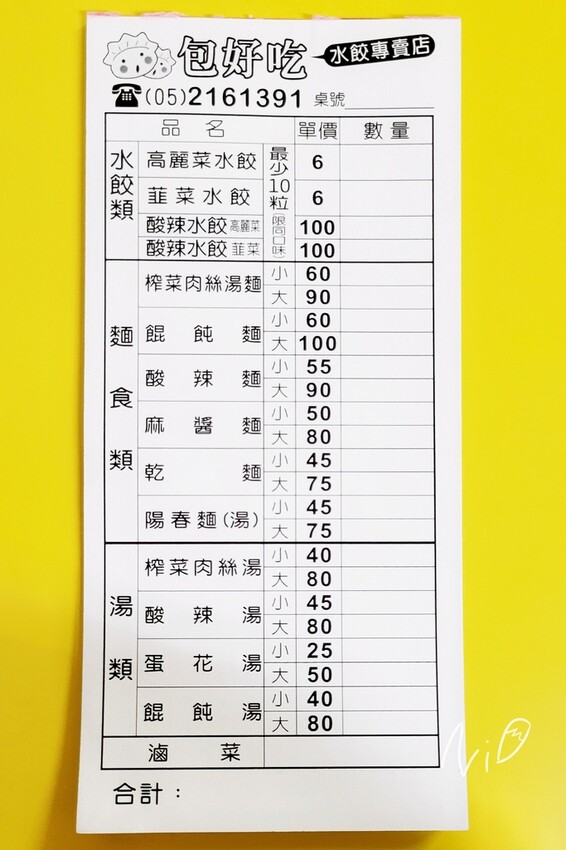 包好吃 水餃專賣店
(05)2161391 桌號
品名 單價 數量
水餃類
高麗菜水餃 最少10粒(限同口味) 6
韮菜水餃 6
酸辣水餃 高麗菜 100
酸辣水餃 韮菜 100
麵食類
榨菜肉絲湯麵 小 60
大 90
餛飩麵 小 60
大 100
酸辣麵 小 55
大 90
麻醬麵 小 50
大 80
乾麵 小 45
大 75
陽春麵(湯) 小 45
大 75
湯類
榨菜肉絲湯 小 40
大 80
酸辣湯 小 45
大 80
蛋花湯 小 25
大 50
餛飩湯 小 40
大 80
滷菜
合計：